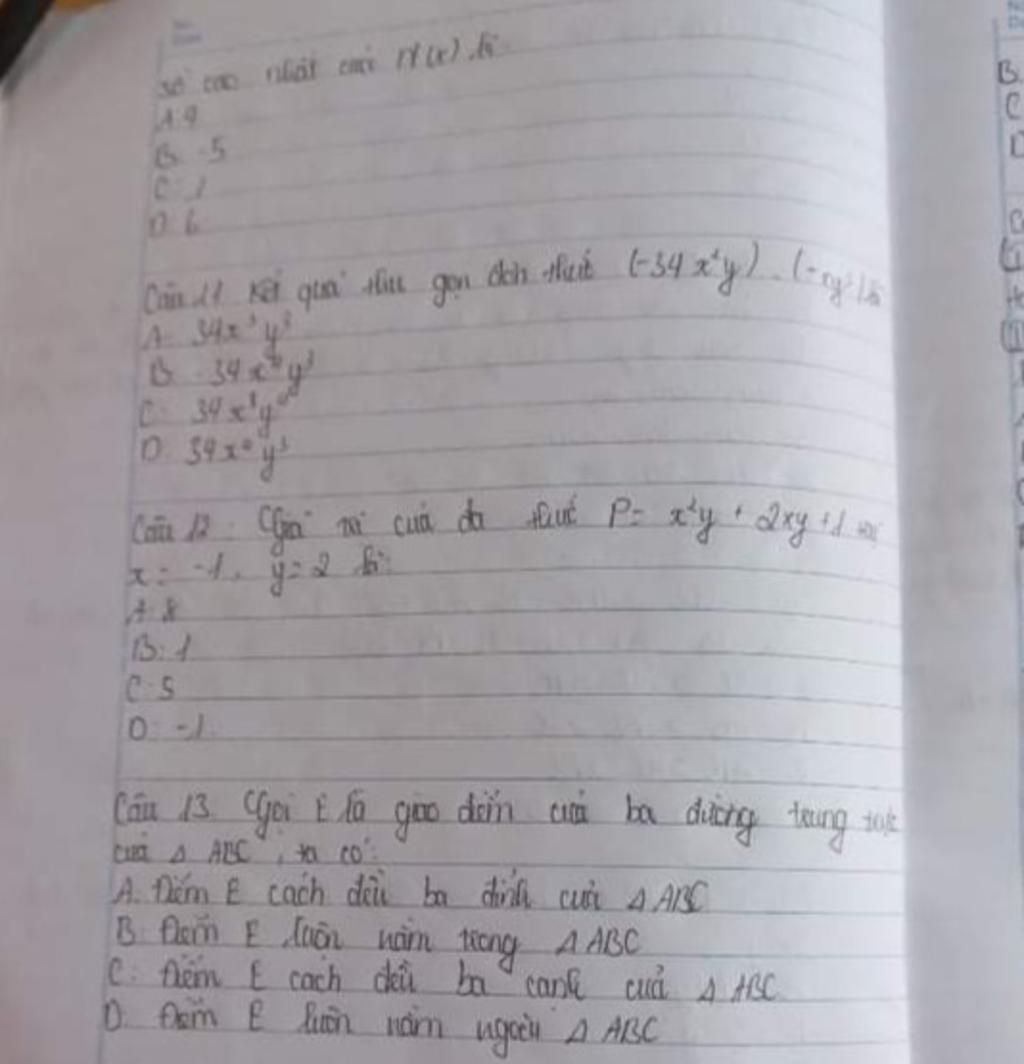 số cao nhất của M(x) là
A. 9
B. -5
C. 1
D. 6
Câu 11 Kết quả thu gọn đơn thức (-34x²y).(-xy²) là
A. 34x³y³
B. -34x y³
C. 34x³y
D. 34x y³
Câu 12: Giá trị của đa thức P= x²y + 2xy + 1 tại
x = -1, y = 2 là:
A. 8
B. 1
C. 5
D. -1
Câu 13. Gọi E là giao điểm của ba đường trung trực
của Δ ABC, ta có:
A. Điểm E cách đều ba đỉnh của Δ ABC
B. Điểm E luôn nằm trong Δ ABC
C. Điểm E cách đều ba cạnh của Δ ABC
D. Điểm E luôn nằm ngoài Δ ABC
B
C